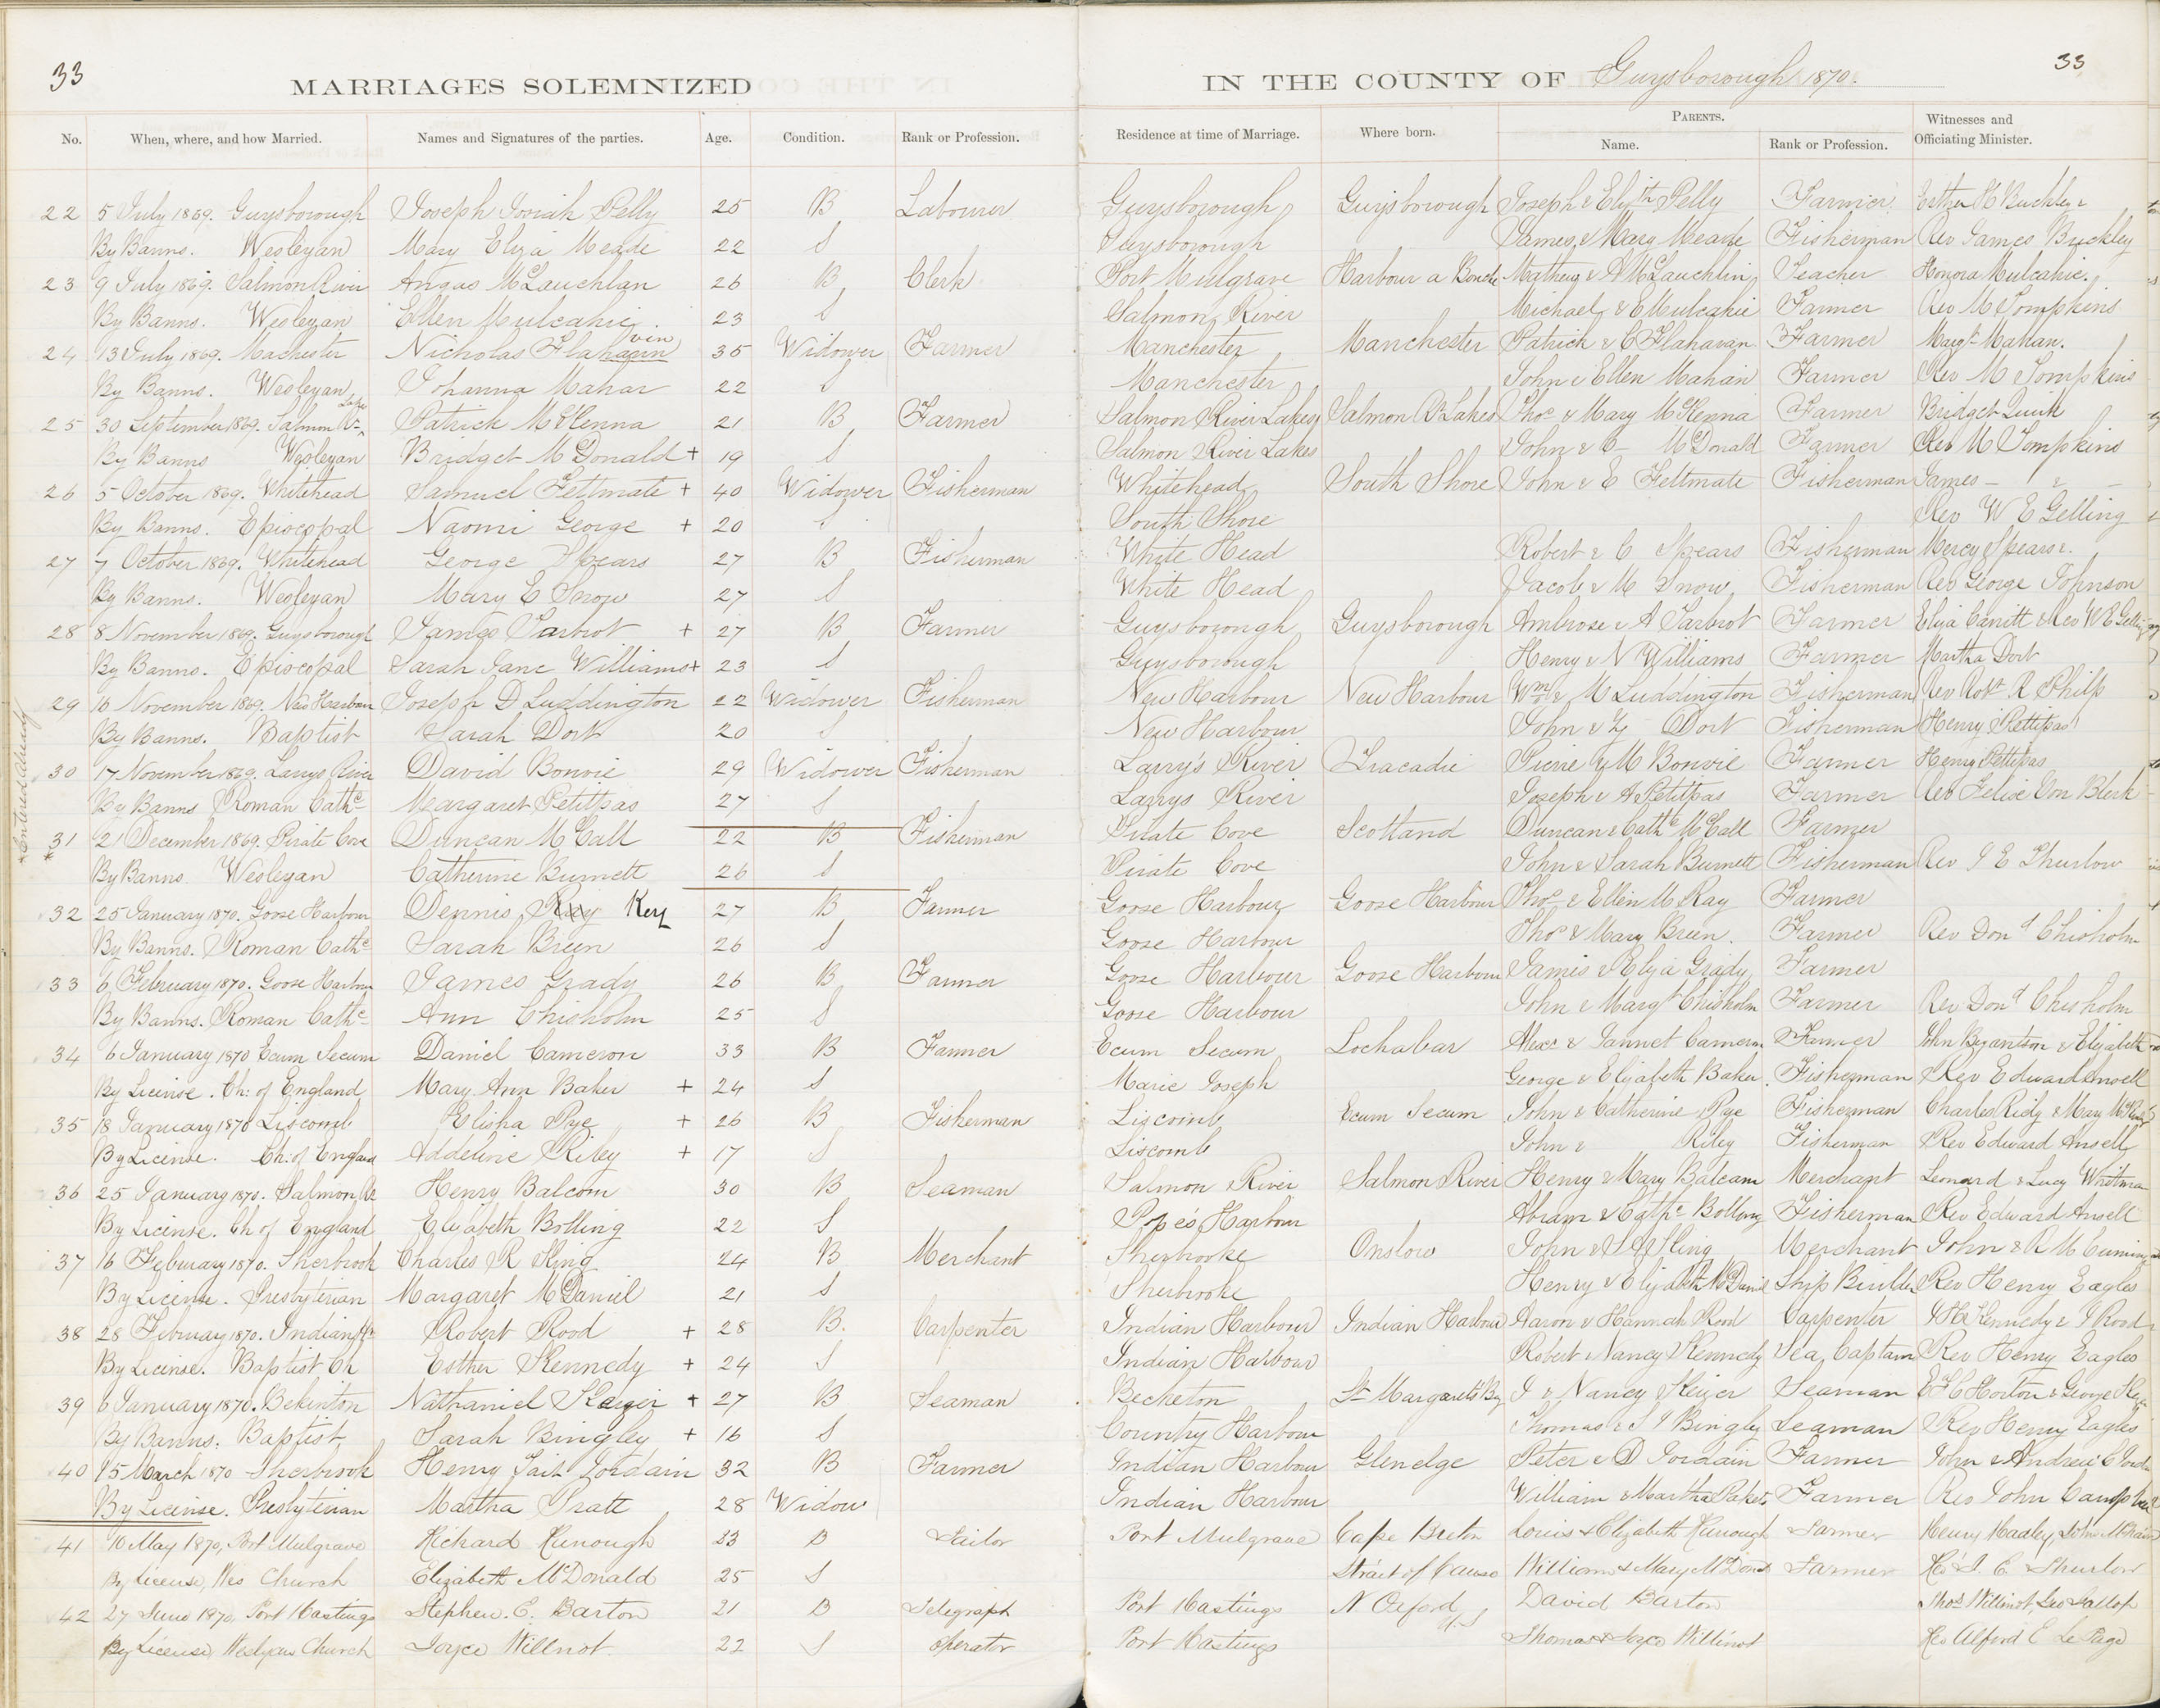 33
MARRIAGES SOLEMNIZED IN THE COUNTY OF Guysborough 1870.
33
No. When, where, and how Married. Names and Signatures of the parties. Age. Condition. Rank or Profession. Residence at time of Marriage. Where born. PARENTS. Name. Rank or Profession. Witnesses and Officiating Minister.
22 5 July 1869. Guysborough Joseph Josiah Pelly 25 B Labourer Guysborough Guysborough Joseph & Elizth Pelly Farmer Esther H Buckley &
By Banns. Wesleyan Mary Eliza Meade 22 S Guysborough James & Mary Meade Fisherman Rev James Buckley
23 9 July 1869. Salmon River Angus McLauchlan 26 B Clerk Port Mulgrave Harbour a Bouche Mathew & A McLauchlin Teacher Honora Mulcahie.
By Banns. Wesleyan Ellen Mulcahie 23 S Salmon River Michael & E Mulcahie Farmer Rev M Tompkins
24 13 July 1869. Machester Nicholas Flahavin 35 Widower Farmer Manchester Manchester Patrick & C Flahavan Farmer Margt Mahan.
By Banns. Wesleyan Johanna Mahar 22 S Manchester John & Ellen Mahan Farmer Rev M Tompkins
25 30 September 1869. Salmon Rr Lakes Patrick McKenna 21 B Farmer Salmon River Lakes Salmon R Lakes Thos & Mary McKenna Farmer Bridget Quirk
By Banns Wesleyan Bridget McDonald + 19 S Salmon River Lakes John & C McDonald Farmer Rev M Tompkins
26 5 October 1869. Whitehead Samuel Feltmate + 40 Widower Fisherman Whitehead South Shore John & E Feltmate Fisherman James - & -
By Banns. Episcopal Naomi George + 20 S South Shore Rev W E Gelling
27 7 October 1869. Whitehead George Spears 27 B Fisherman White Head Robert & C Spears Fisherman Mercy Spears &.
By Banns. Wesleyan Mary E Snow 27 S White Head Jacob & M Snow Fisherman Rev George Johnson
28 8 November 1869. Guysborough James Tarbrot + 27 B Farmer Guysborough Guysborough Ambrose & A Tarbrot Farmer Eliza Cavitt & Rev W E Gelling
By Banns. Episcopal Sarah Jane Williams + 23 S Guysborough Henry & N Williams Farmer Martha Dort
29 16 November 1869. New Harbour Joseph D Luddington 22 Widower Fisherman New Harbour New Harbour Wm & M Luddington Fisherman Rev Robt R Philp
By Banns. Baptist Sarah Dort 20 S New Harbour John & Dort Fisherman Henry Pettipas
30 17 November 1869. Larrys River David Bonvie 29 Widower Fisherman Larry's River Tracadie Pierre & M Bonvie Farmer Henry Pettipas
By Banns Roman Cathc Margaret Petitpas 27 S Larrys River Joseph & A Petitpas Farmer Rev Felix Von Blerk
*Entered already
* 31 21 December 1869. Pirate Cove Duncan McCall 22 B Fisherman Pirate Cove Scotland Duncan & Cathe McCall Farmer
By Banns Wesleyan Catherine Burnett 26 S Pirate Cove John & Sarah Burnett Fisherman Rev J E Thurlow
32 25 January 1870. Goose Harbour Dennis Ray 27 B Farmer Goose Harbour Goose Harbour Thos & Ellen M Ray Farmer
By Banns. Roman Cathc Sarah Breen 26 S Goose Harbour Thos & Mary Breen. Farmer Rev Dond Chisholm
33 6 February 1870. Goose Harbour James Grady 26 B Farmer Goose Harbour Goose Harbour James & Eliza Grady Farmer
By Banns. Roman Cathc Ann Chisholm 25 S Goose Harbour John & Margt Chisholm Farmer Rev Dond Chisholm
34 6 January 1870 Ecum Secum Daniel Cameron 33 B Farmer Ecum Secum Lochabar Alexr & Jannet Cameron Farmer John & Elizabeth
By License. Ch: of England Mary Ann Baker + 24 S Marie Joseph George & Elizabeth Baker. Fisherman Rev Edward Ansell
35 18 January 1870 Liscomb Elisha Pye + 26 B Fisherman Liscomb Ecum Secum John & Catherine Pye Fisherman Charles Ridy & Mary
By License. Ch: of England Addeline Riley + 17 S Liscomb John & Riley Fisherman Rev Edward Ansell
36 25 January 1870. Salmon Rr Henry Balcom 30 B Seaman Salmon River Salmon River Henry & Mary Balcam Merchant Leonard & Lucy Whitman
By License. Ch of England Elizabeth Bolling 22 S Popes Harbour Abram & Cathe Bolling Fisherman Rev Edward Ansell
37 16 February 1870. Sherbrook Charles R King 24 B Merchant Sherbrooke Onslow John & S King Merchant John & R McCumin
By License. Presbyterian Margaret McDaniel 21 S Sherbrooke Henry & Elizabeth McDaniel Ship Builder Rev Henry Eagles
38 28 February 1870. Indian Hr Robert Rood + 28 B. Carpenter Indian Harbour Indian Harbour Aaron & Hannah Rood Carpenter J H Kennedy & J Rood
By License. Baptist Ch Esther Kennedy + 24 S Indian Harbour Robert & Nancy Kennedy Sea Captain Rev Henry Eagles
39 6 January 1870. Bekinton Nathaniel Keizer + 27 B Seaman Becheton St Margarets Bay J & Nancy Keizer Seaman E H Horton & George
By Banns. Baptist Sarah Bingley + 16 S Country Harbour Thomas & S J Bingley Seaman Rev Henry Eagles
40 15 March 1870 Sherbrook Henry Jordain 32 B Farmer Indian Harbour Glenelge Peter & D Jordain Farmer John & Andrew C
By License. Presbyterian Martha Pratt 28 Widow Indian Harbour William & Martha Farmer Rev John Campbell
41 10 May 1870, Port Mulgrave Richard Kunough 23 B Sailor Port Mulgrave Cape Breton Louis & Elizabeth Kunough Farmer Henry Hadley, John
By License, Wes Church Elizabeth McDonald 25 S Strait of Canso William & Mary McDond Farmer Re J. E. Thurlow
42 27 June 1870, Port Hastings Stephen. E. Barton 21 B Telegraph Port Hastings N Oxford U.S David Barton Thos Willnot, Geo Gallop
By License Weslyan Church Joyce Willnot 22 S operator Port Hastings Thomas & Joyce Willinot Re Alford E Le Page